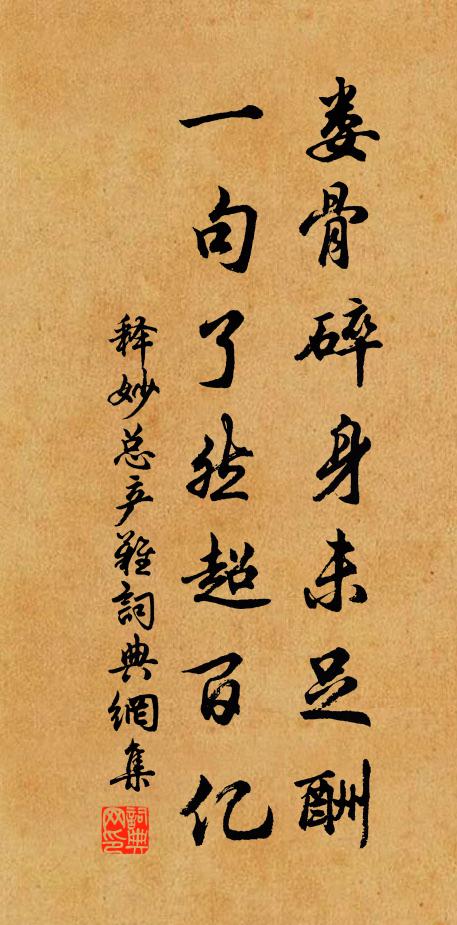 娄骨碎身未足酬
一句了然超百亿
释妙总产難詞典網集
詞典网印